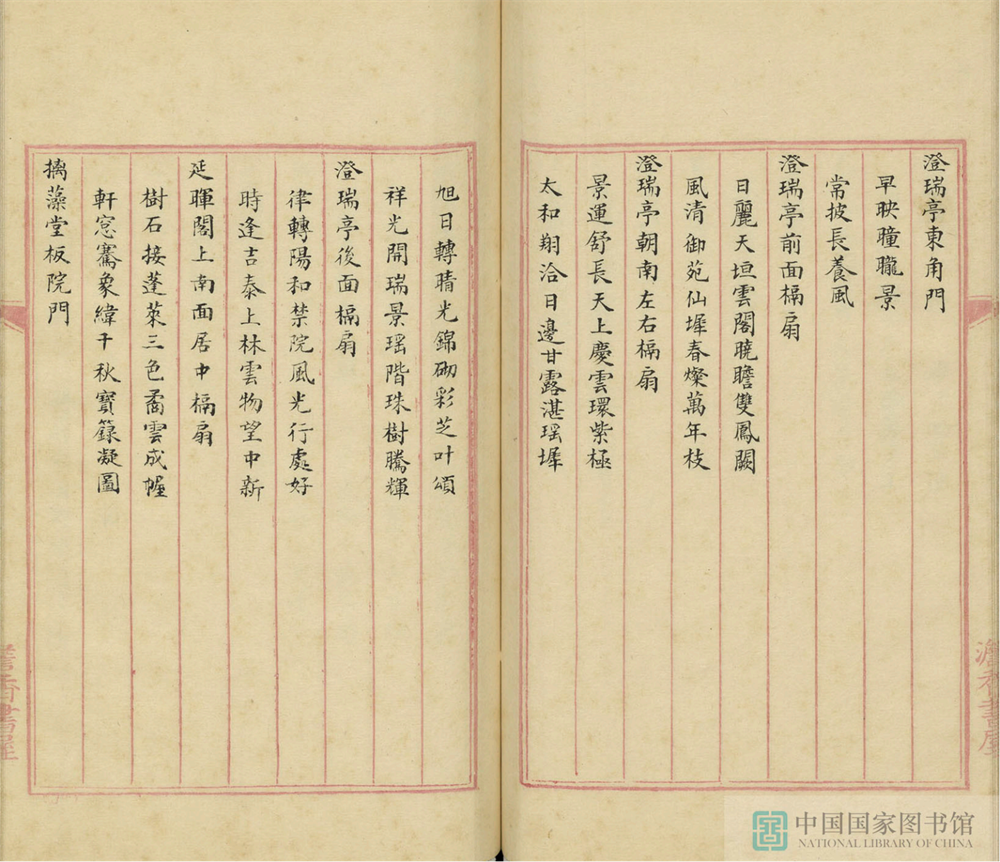 澄瑞亭東角門
早映曈曨景
常披長養風
澄瑞亭前面槅扇
日麗天垣雲閣曉瞻雙鳳闕
風清御苑仙墀春燦萬年枝
澄瑞亭朝南左右槅扇
景運舒長天上慶雲環紫極
太和翔洽日邊甘露湛瑶墀
旭日轉晴光錦砌彩芝叶頌
祥光開瑞景瑶階珠樹騰輝
澄瑞亭後面槅扇
律轉陽和禁院風光行處好
時逢吉泰上林雲物望中新
延暉閣上南面居中槅扇
樹石接蓬萊三色矞雲成幄
軒窓騫象緯千秋寳籙凝圖
摛藻堂板院門
澹香書屋
香書屋
中国国家图书馆
NATIONAL LIBRARY OF CHINA